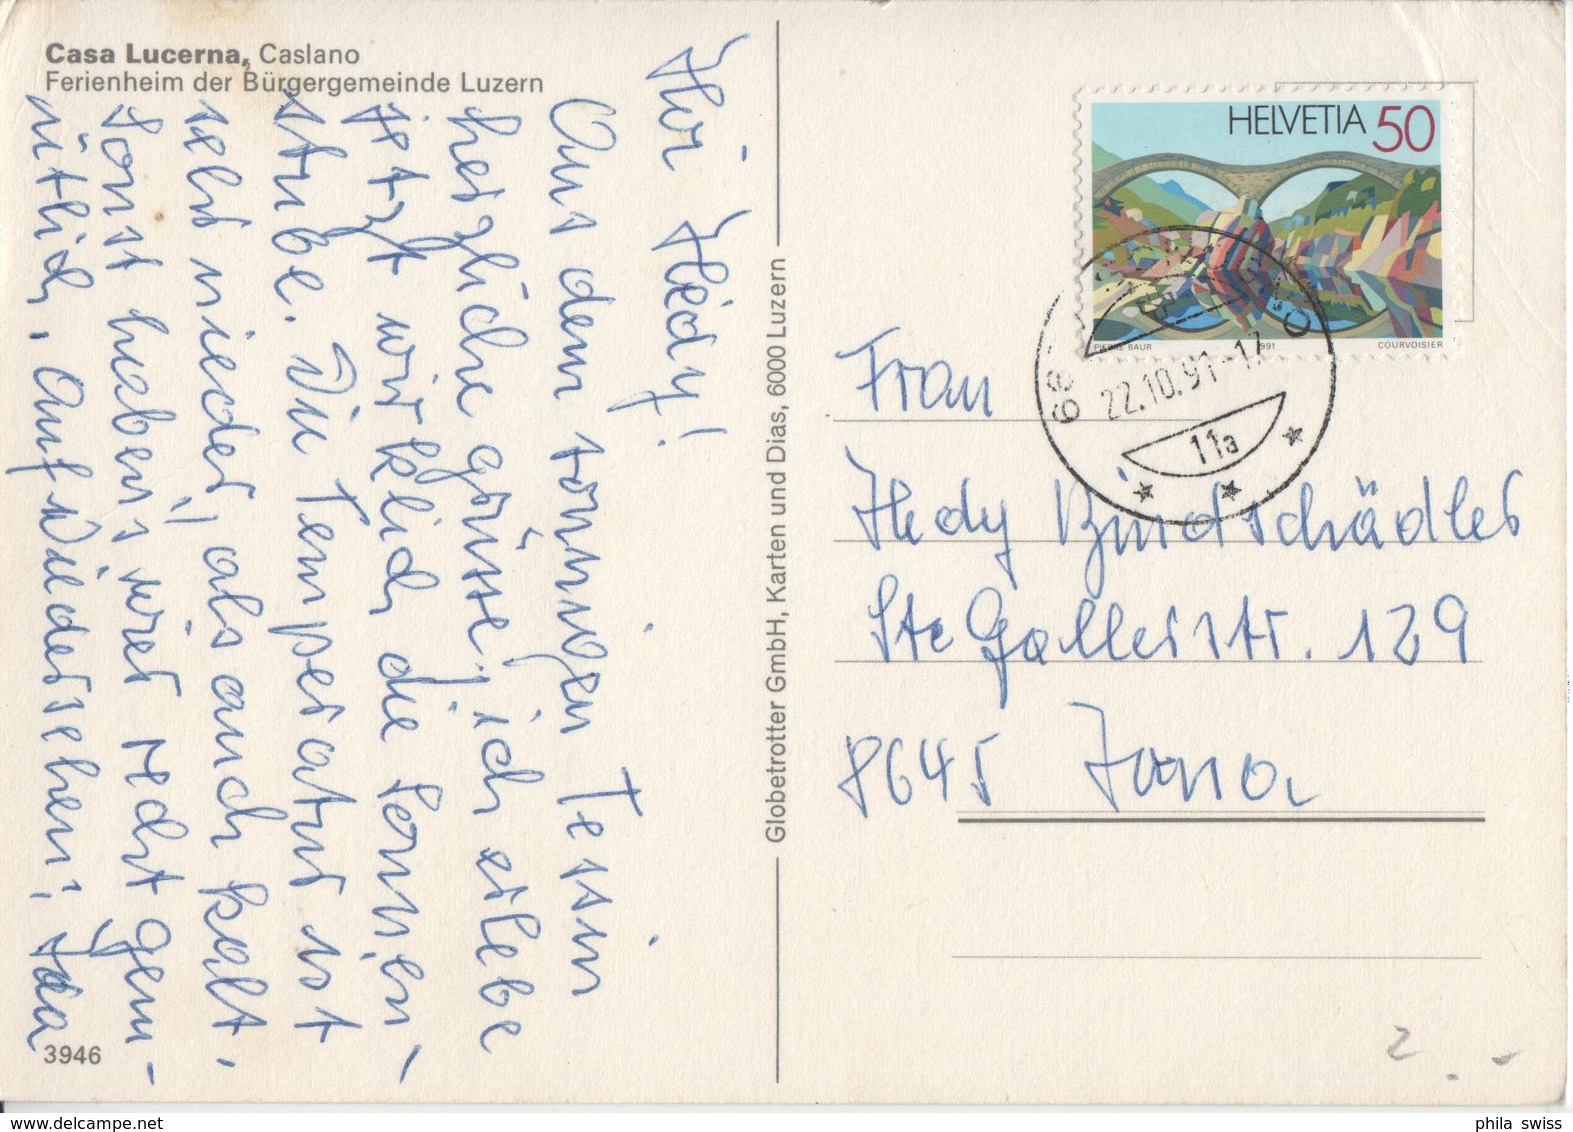 Casa Lucerna, Caslano
Ferienheim der Bürgergemeinde Luzern
Hoi Hedy!
Aus dem sonnigen Tessin
herzliche Grüsse, ich erlebe
jetzt wirklich die Sonnen-
stube. Die Temperatur ist
sehr nieder, also auch kalt,
sonst haben's wir recht gem-
ütlich. Auf Wiedersehen: Ida
3946
Globetrotter GmbH, Karten und Dias, 6000 Luzern
HELVETIA 50
PIERRE BAUR 1991 COURVOISIER
22.10.91-17
11a
Frau
Hedy Bindschädler
St Gallerstr. 129
8645 Jona
2.-
phila swiss